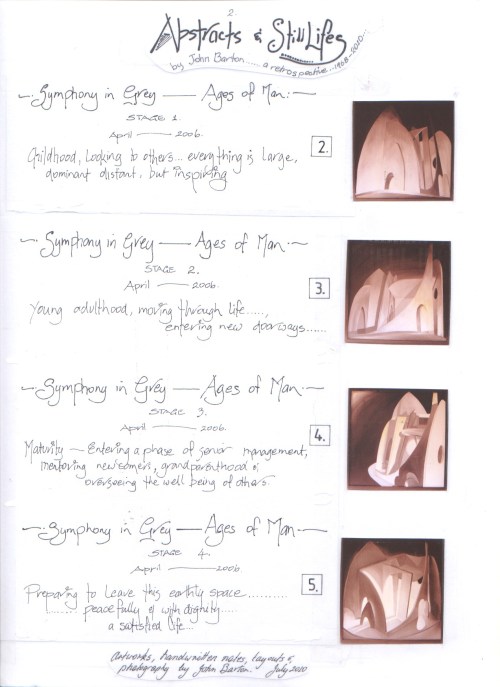 2.
Abstracts & Still Lifes
by John Barton ..... a retrospective... 1968-2010...
Symphony in Grey — Ages of Man:-
STAGE 1.
April — 2006.
Childhood, Looking to others... everything is Large,
dominant distant, but inspiring
2.
Symphony in Grey — Ages of Man
STAGE 2.
April — 2006.
Young adulthood, moving through life.....,
entering new doorways......
3.
Symphony in Grey — Ages of Man
STAGE 3.
April — 2006.
Maturity — Entering a phase of senior management,
mentoring newcomers, grandparenthood &
overseeing the well being of others.
4.
Symphony in Grey — Ages of Man
STAGE 4.
April — 2006
Preparing to Leave this earthly space..........
........ peacefully & with dignity.....
a satisfied life...
5.
Artworks, handwritten notes, layouts &
photography by John Barton July 2010